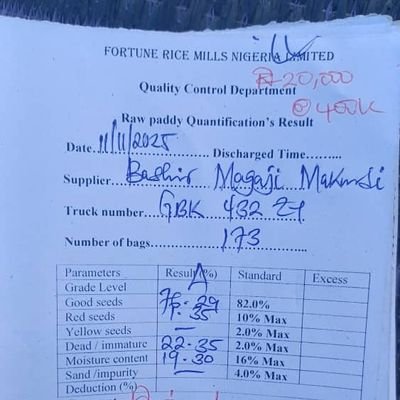 FORTUNE RICE MILLS NIGERIA LIMITED
₦20,000
Quality Control Department
@ 400K
Raw paddy Quantification's Result
Date 11/11/2025 Discharged Time
Supplier Bashir Magaji Makurdi
Truck number GBK 432
Number of bags 173
Parameters Result (%) Standard Excess
Grade Level A
Good seeds 76.29 82.0%
Red seeds 1.35 10% Max
Yellow seeds — 2.0% Max
Dead / immature 22.35 2.0% Max
Moisture content 19.30 16% Max
Sand /impurity — 4.0% Max
Deduction (%)